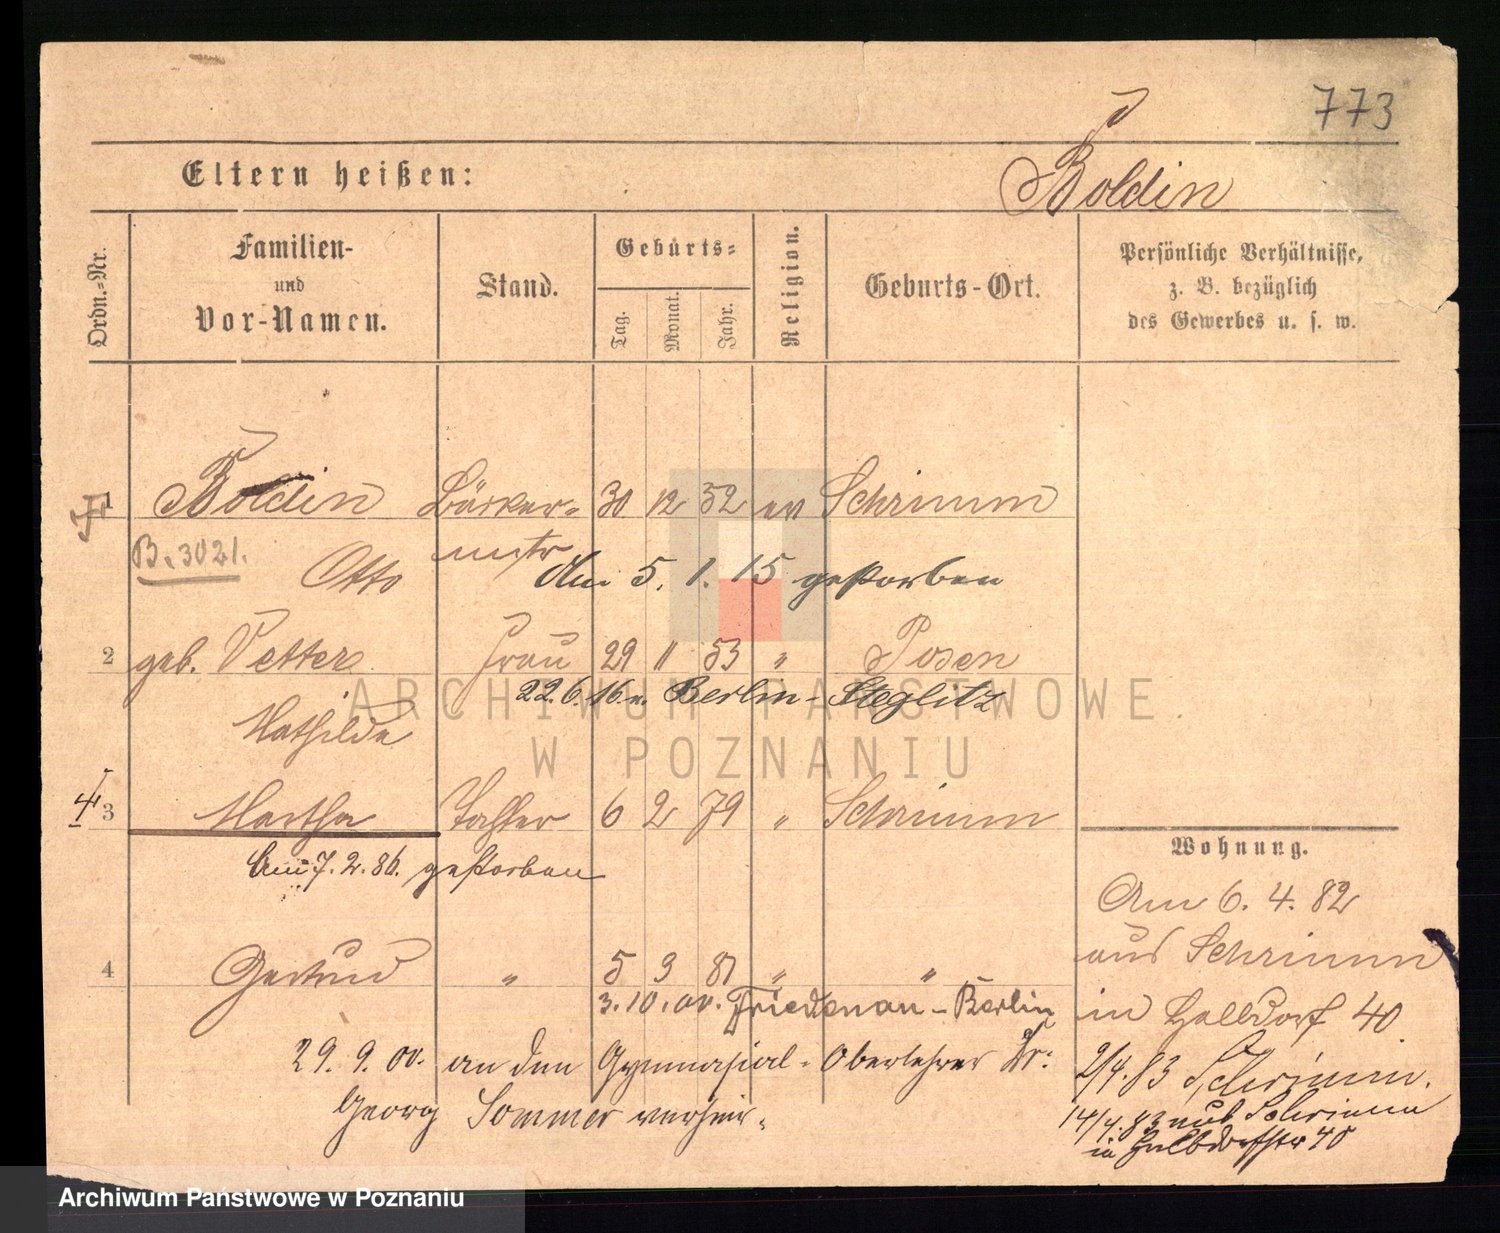 773
Eltern heißen:
Boldin
Ordn.-Nr.
Familien-
und
Vor-Namen.
Stand.
Geburts-
Tag.
Monat.
Jahr.
Religion.
Geburts-Ort.
Persönliche Verhältnisse,
z. B. bezüglich
des Gewerbes u. s. w.
1 Boldin Bäcker- 30 12 52 ev Schrimm
B. 3021. Otto mstr
Am 5. 1. 15 gestorben
2 geb. Vetter Frau 29 11 53 " Posen
22.6.16 n. Berlin-Steglitz
Mathilde
3 Martha Tochter 6 2 79 " Schrimm
Am 7. 2. 86. gestorben
4 Gertrud " 5 3 81 " "
3. 10. 00. Friedenau-Berlin
29. 9. 00. an den Gymnasial-Oberlehrer Dr.
Georg Sommer verheir.
Wohnung.
Am 6. 4. 82
aus Schrimm
in Halbdorf 40
2/4. 83 Schrimm.
14/4. 83 aus Schrimm
in Halbdorfstr 40
ARCHIWUM PAŃSTWOWE
W POZNANIU
Archiwum Państwowe w Poznaniu